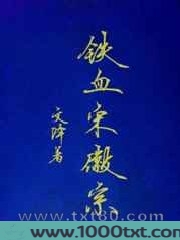 铁血宋徽宗
文绎著
www.txt80.com
www.1000txt.com